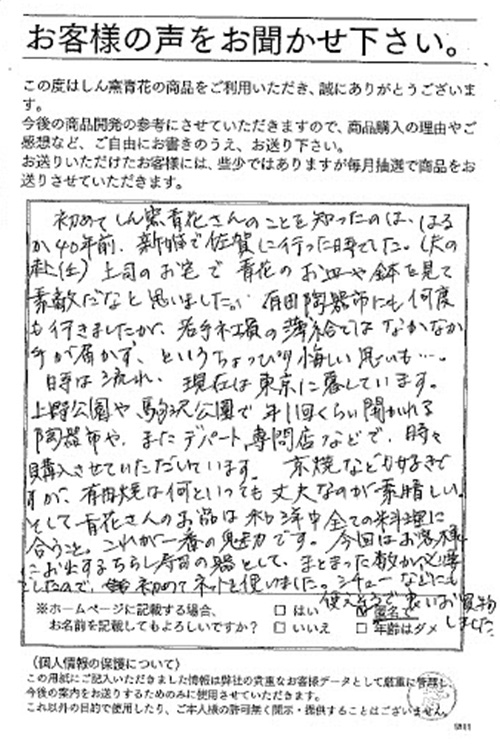 お客様の声をお聞かせ下さい。
この度はしん窯青花の商品をご利用いただき、誠にありがとうございま
す。
今後の商品開発の参考にさせていただきますので、商品購入の理由やご
感想など、ご自由にお書きのうえ、お送り下さい。
お送りいただけたお客様には、些少ではありますが毎月抽選で商品をお
送りさせていただきます。
初めてしん窯青花さんのことを知ったのは、はる
か40年前、新婚で佐賀に行った時でした。(夫の
赴任) 上司のお宅で青花のお皿や鉢を見て
素敵だなと思いました。有田陶器市にも何度
も行きましたが、若手社員の薄給ではなかなか
手が届かず、というちょっぴり悔しい思いも…。
時は流れ、現在は東京に暮しています。
上野公園や駒沢公園で年1回くらい開かれる
陶器市や、またデパート、専門店などで、時々
購入させていただいています。京焼なども好きで
すが、有田焼は何といっても丈夫なのが素晴しい。
そして青花さんのお品は和洋中全ての料理に
合うこと。これが一番の魅力です。今回はお客様
にお出しするちらし寿司の器として、まとまった数が必要
でしたので、初めてネットを使いました。シチューなどにも
使えそうで良いお買物
しました。
※ホームページに記載する場合、 □ はい □ 匿名で
お名前を記載してもよろしいですか? □ いいえ □ 年齢はダメ
〈個人情報の保護について〉
この用紙にご記入いただきました情報は弊社の貴重なお客様データとして厳重に管理し、
今後の案内をお送りするためのみに使用させていただきます。
これ以外の目的で使用したり、ご本人様の許可無く開示・提供することはございません。